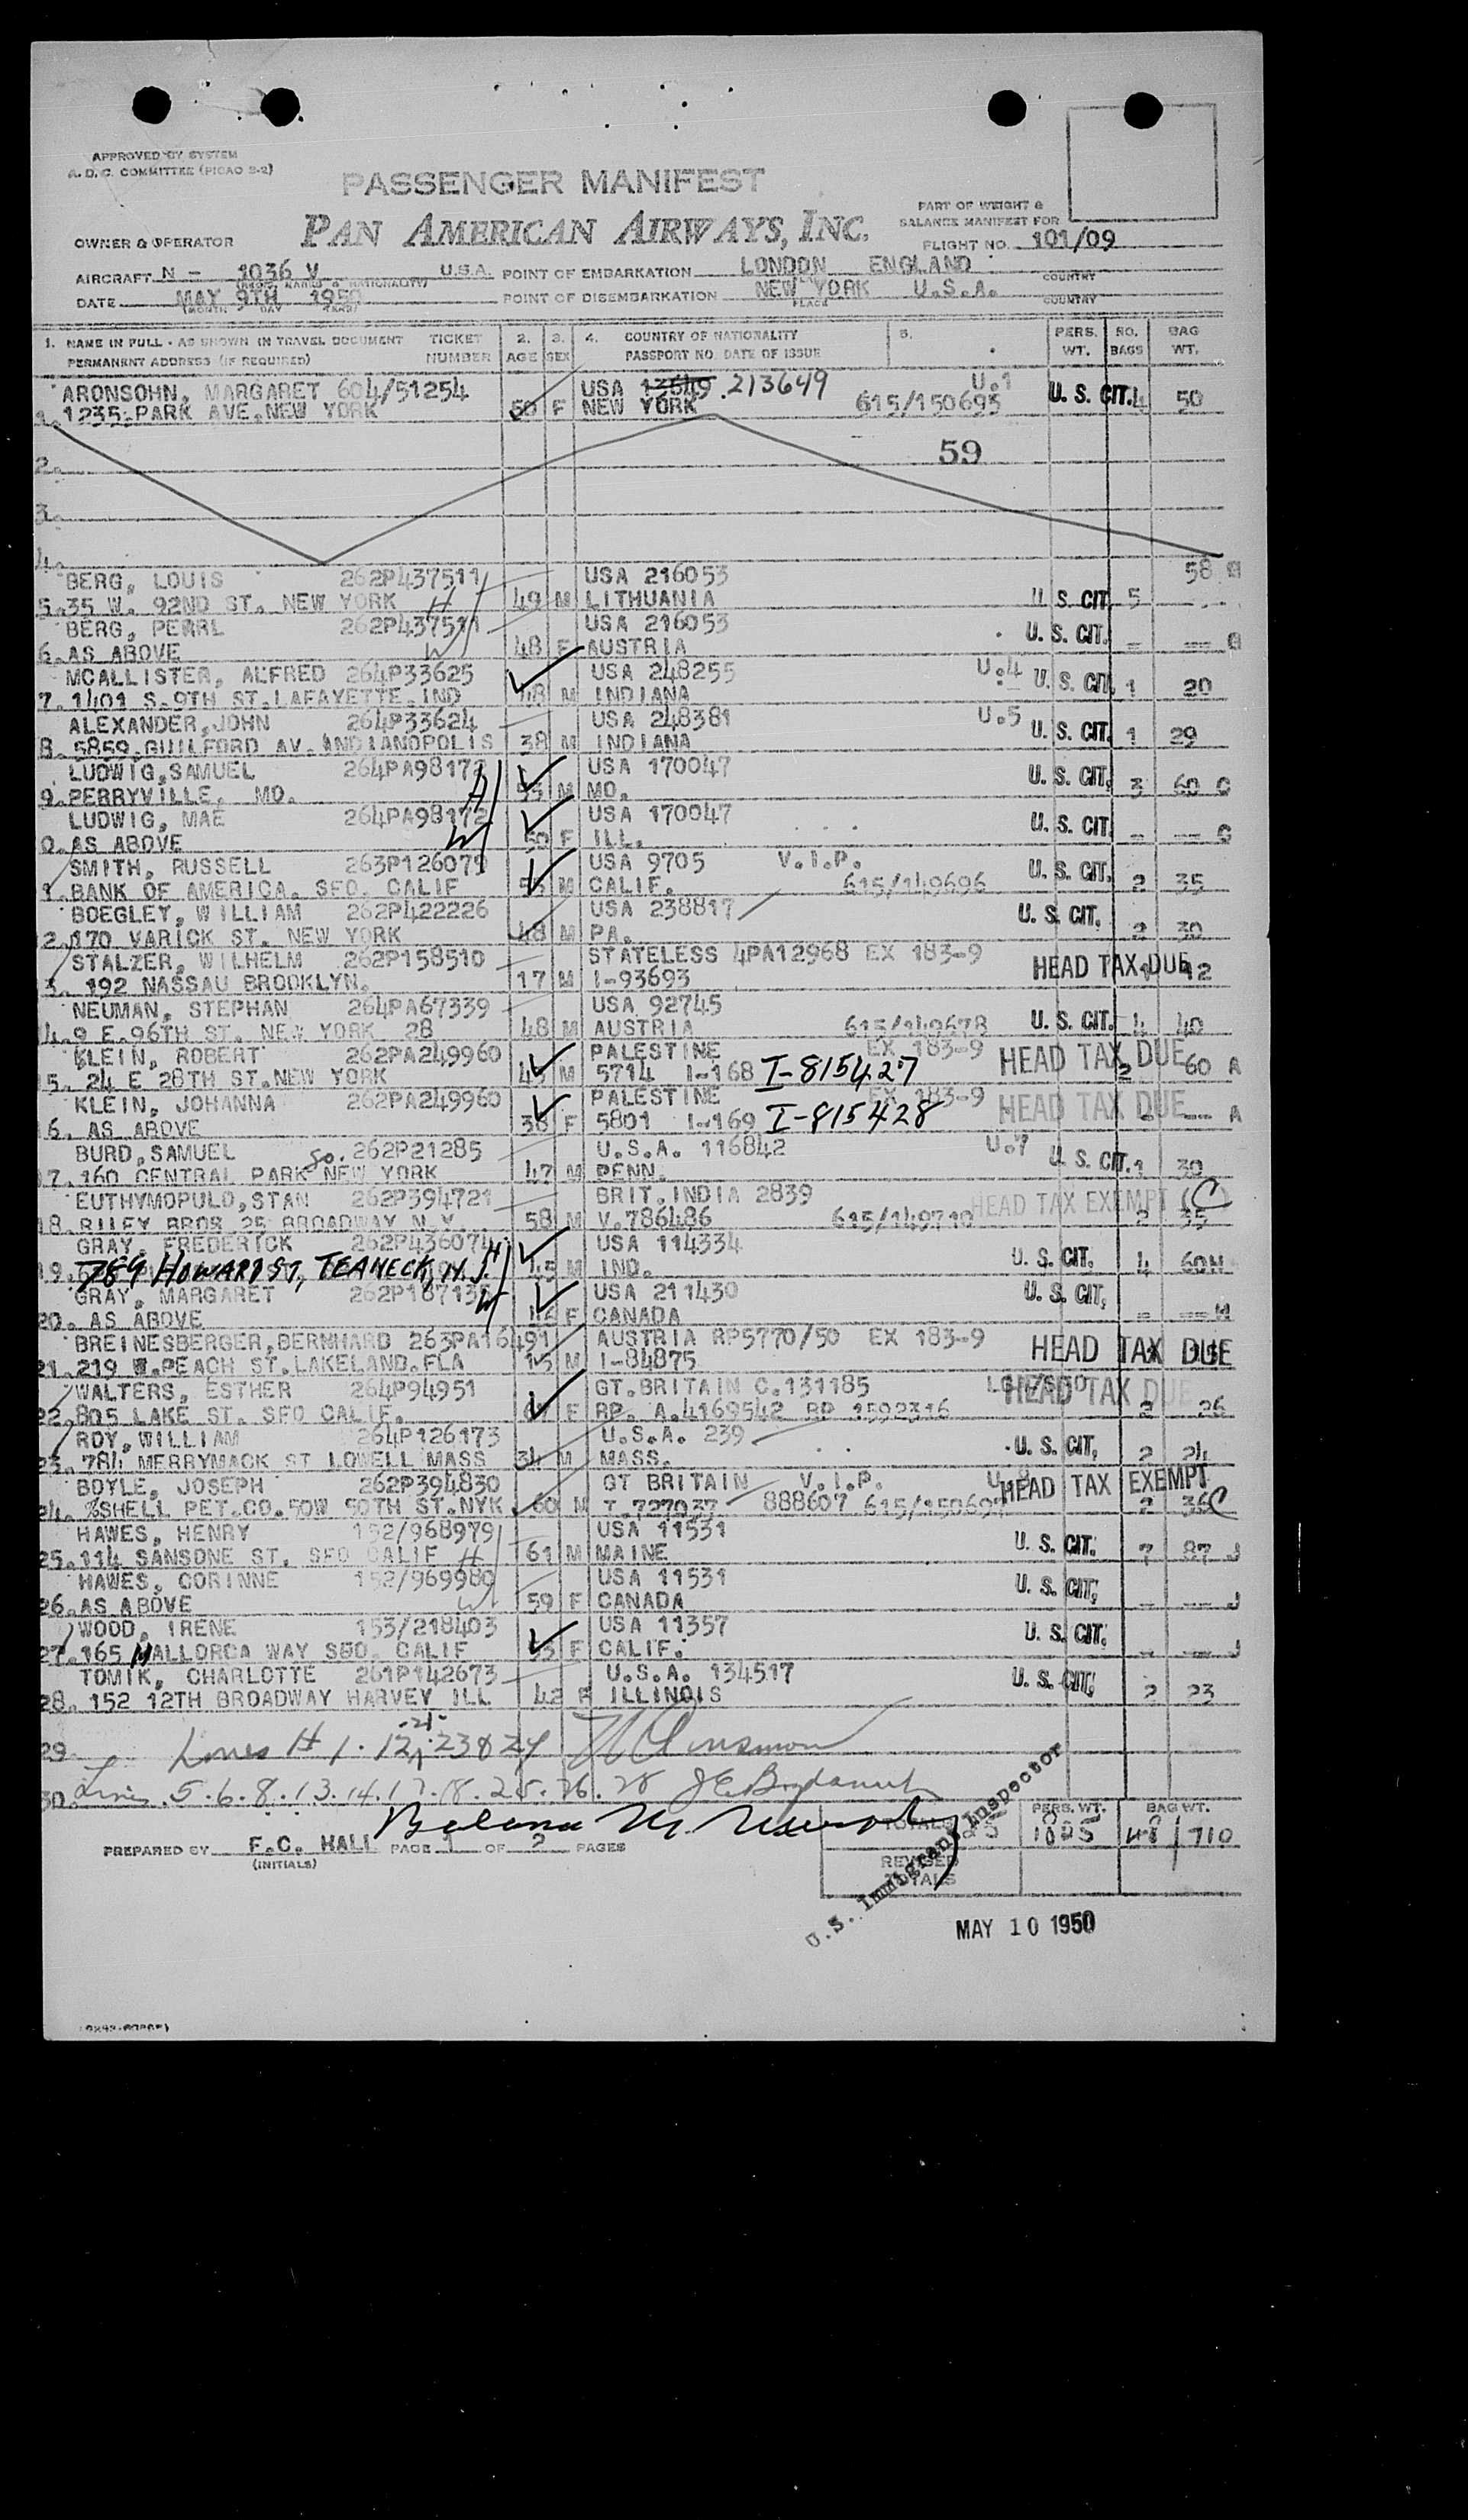 APPROVED BY SYSTEM
A. D. C. COMMITTEE (PICAO 2-2)
PASSENGER MANIFEST
PAN AMERICAN AIRWAYS, INC.
PART OF WEIGHT &
BALANCE MANIFEST FOR
OWNER & OPERATOR
FLIGHT NO. 101/09
AIRCRAFT N - 1036 V U.S.A. POINT OF EMBARKATION LONDON ENGLAND COUNTRY
DATE MAY 9TH 1950 POINT OF DISEMBARKATION NEW YORK U.S.A. COUNTRY
(MONTH DAY YEAR) PLACE
1. NAME IN FULL - AS SHOWN IN TRAVEL DOCUMENT TICKET 2. 3. 4. COUNTRY OF NATIONALITY 5. PERS. NO. BAG
PERMANENT ADDRESS (IF REQUIRED) NUMBER AGE SEX PASSPORT NO. DATE OF ISSUE WT. BAGS WT.
ARONSOHN, MARGARET 604/51254 USA 213649 U.1
1. 1235 PARK AVE. NEW YORK 50 F NEW YORK 615/150695 U. S. CIT. 4 50
59
2.
3.
4.
BERG, LOUIS 262P437511 USA 216053 58 G
5. 35 W. 92ND ST. NEW YORK H 49 M LITHUANIA U. S. CIT. 5
BERG, PERRL 262P437511 USA 216053
6. AS ABOVE W 48 F AUSTRIA U. S. CIT. - -- G
MCALLISTER, ALFRED 264P33625 USA 248255 U.4
7. 1401 S. 9TH ST. LAFAYETTE. IND 48 M INDIANA U. S. CIT. 1 20
ALEXANDER, JOHN 264P33624 USA 248381 U.5
8. 5859 GUILFORD AV. INDIANOPOLIS 38 M INDIANA U. S. CIT. 1 29
LUDWIG, SAMUEL 264PA98172 USA 170047
9. PERRYVILLE, MO. H 55 M MO. U. S. CIT. 3 60 C
LUDWIG, MAE 264PA98172 USA 170047
0. AS ABOVE W 50 F ILL. U. S. CIT. - -- C
SMITH, RUSSELL 263P126079 USA 9705 V.I.P.
1. BANK OF AMERICA. SFO. CALIF M CALIF. 615/149696 U. S. CIT. 2 35
BOEGLEY, WILLIAM 262P422226 USA 238817
2. 170 VARICK ST. NEW YORK 48 M PA. U. S. CIT. 2 30
STALZER, WILHELM 262P158510 STATELESS 4PA12968 EX 183-9
3. 192 NASSAU BROOKLYN. 17 M I-93693 HEAD TAX DUE 1 12
NEUMAN, STEPHAN 264PA67339 USA 92745
4. 9 E. 96TH ST. NEW YORK 28 48 M AUSTRIA 615/149678 U. S. CIT. 4 40
KLEIN, ROBERT 262PA249960 PALESTINE EX 183-9 HEAD TAX DUE
5. 24 E 28TH ST. NEW YORK M 5714 I-168 I-815427 2 60 A
KLEIN, JOHANNA 262PA249960 PALESTINE EX 183-9 HEAD TAX DUE
6. AS ABOVE 38 F 5801 I-169 I-815428 - -- A
BURD, SAMUEL 262P21285 U.S.A. 116842
7. 160 CENTRAL PARK So. NEW YORK 47 M PENN. U. S. CIT. 1 30
EUTHYMOPULO, STAN 262P394721 BRIT. INDIA 2839 HEAD TAX EXEMPT (C)
8. RILEY BROS 25 BROADWAY N.Y. 58 M V.786486 615/149710 2 35
GRAY, FREDERICK 262P436074 USA 114334
9. 789 HOWARD ST, TEANECK, N.J. H 45 M IND. U. S. CIT. 4 60 H
GRAY, MARGARET 262P187135 USA 211430
20. AS ABOVE W F CANADA U. S. CIT. - -- H
BREINESBERGER, BERNHARD 263PA16491 AUSTRIA RP5770/50 EX 183-9
21. 219 W. PEACH ST. LAKELAND. FLA 15 M I-84875 HEAD TAX DUE
WALTERS, ESTHER 264P94951 GT. BRITAIN C.131185 HEAD TAX DUE
22. 805 LAKE ST. SFO CALIF. F RP. A.4169542 RP 1592316 2 26
ROY, WILLIAM 264P126173 U.S.A. 239
23. 784 MERRYMACK ST LOWELL MASS 34 M MASS. U. S. CIT. 2 24
BOYLE, JOSEPH 262P394830 GT BRITAIN V.I.P. HEAD TAX EXEMPT
24. %SHELL PET. CO. 50W 50TH ST. NYK 60 M T.727037 888607 2 36 C
HAWES, HENRY 152/968979 USA 11531
25. 114 SANSONE ST. SFO CALIF H 61 M MAINE U. S. CIT. 7 87 J
HAWES, CORINNE 152/969980 USA 11531
26. AS ABOVE W 59 F CANADA U. S. CIT. - -- J
WOOD, IRENE 153/218403 USA 11357
27. 165 MALLORCA WAY SFO. CALIF F CALIF. U. S. CIT. - -- J
TOMIK, CHARLOTTE 261P142673 U.S.A. 134517
28. 152 12TH BROADWAY HARVEY ILL 42 F ILLINOIS U. S. CIT. 2 23
29. Lines
30. Lines 5. 6. 8. 13. 14. 17. 18. 25. 26. 28
Balance
TOTALS PERS. WT. BAG WT.
48 710
PREPARED BY F.C. HALL PAGE 1 OF 2 PAGES
(INITIALS)
REVISED
TOTALS
U.S. Immigrant Inspector
MAY 10 1950